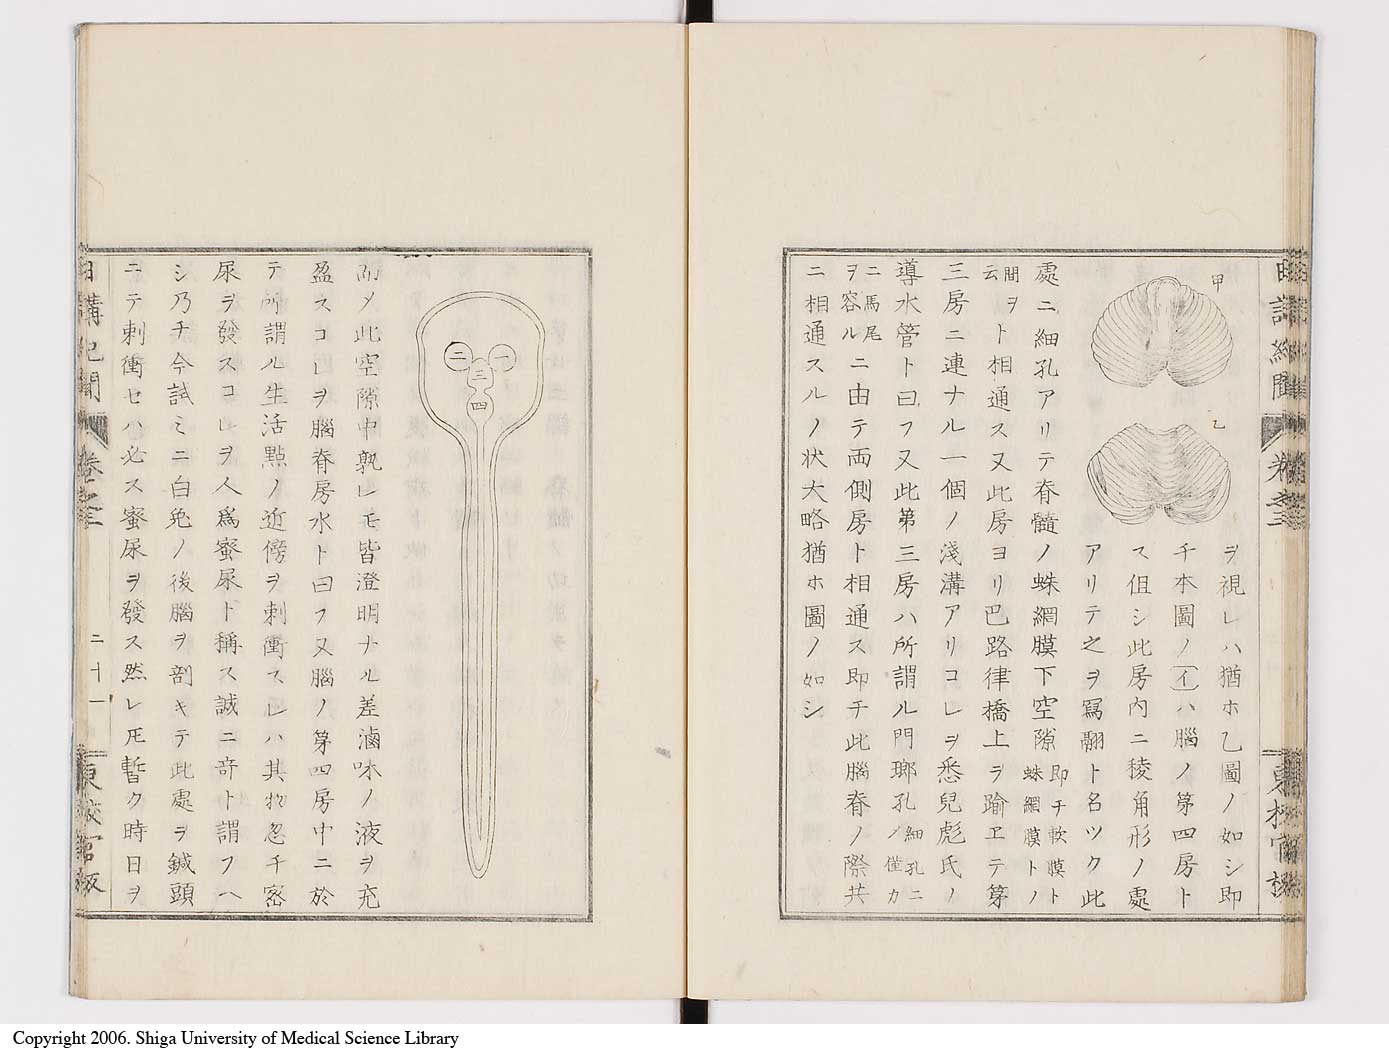 甲
乙
ヲ視レハ猶ホ乙圖ノ如シ即
チ本圖ノ(イ)ハ腦ノ第四房ト
ス但シ此房内ニ稜角形ノ處
アリテ之ヲ寫翮ト名ツク此
處ニ細孔アリテ脊髓ノ蛛網膜下空隙即チ軟膜ト蛛網膜トノ
間ヲ云ト相通ス又此房ヨリ巴路律橋上ヲ踰ヱテ第
三房ニ連ナル一個ノ淺溝アリコレヲ悉兒彪氏ノ
導水管ト曰フ又此第三房ハ所謂ル門瑯孔細孔ニノ僅カ
ニ馬尾ヲ容ルニ由テ両側房ト相通ス即チ此腦脊ノ際共
ニ相通スルノ状大略猶ホ圖ノ如シ
日講紀聞
卷之三
東校官板
一
二
三
四
而メ此空隙中孰レモ皆澄明ナル差滷味ノ液ヲ充
盈スコレヲ腦脊房水ト曰フ又腦ノ第四房中ニ於
テ所謂ル生活點ノ近傍ヲ刺衝スレハ其物忽チ密
尿ヲ發スコレヲ人爲蜜尿ト稱ス誠ニ竒ト謂フヘ
シ乃チ今試ミニ白兔ノ後腦ヲ剖キテ此處ヲ鍼頭
ニテ刺衝セハ必ス蜜尿ヲ發ス然レ𪜈暫ク時日ヲ
日講紀聞
卷之三
二十一
東校官板
Copyright 2006. Shiga University of Medical Science Library